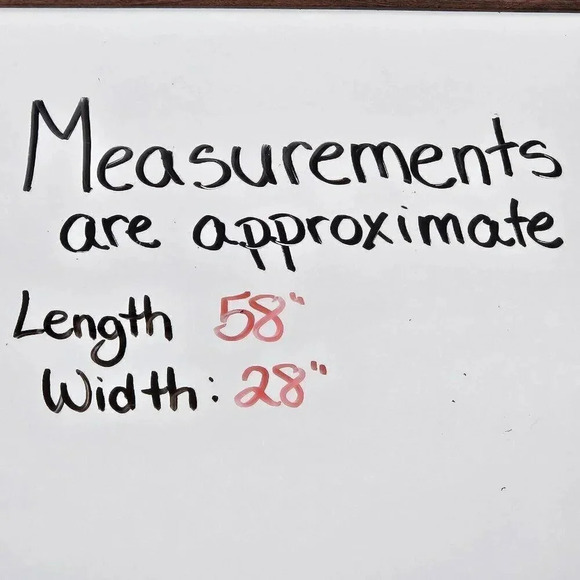 Measurements
are approximate
Length 58"
Width: 28"